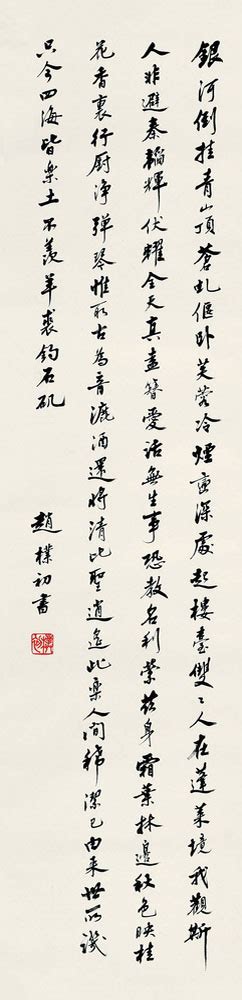 銀河倒挂青山頂蒼虬偃卧芙蓉冷煙重深處起樓臺雙〻人在蓬萊境我觀斯
人非避秦韜輝伏耀全天真盍簪愛話無生事恐教名利縈茲身霜葉林邊秋色映桂
花香裏行厨净弹琴惟取古為音漉酒還将清比聖逍遥此樂人間稀潔己由来世所譏
只今四海皆樂土不羨羊裘釣石矶
趙樸初書